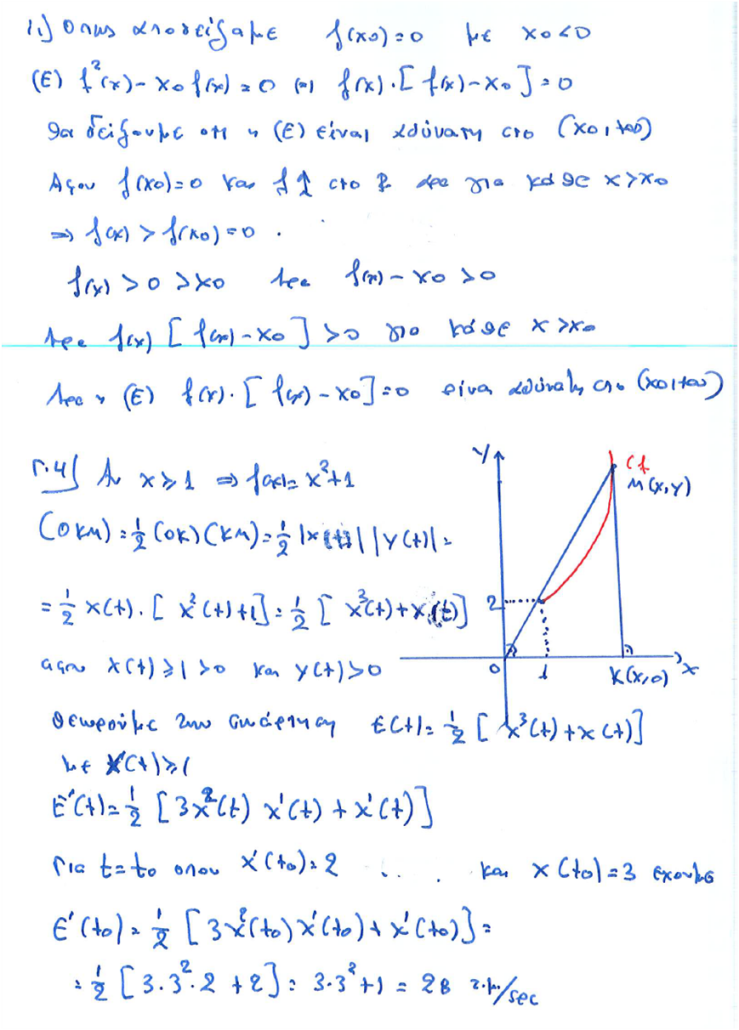 ii) Οπως αποδείξαμε f(x₀)=0 με x₀<0
(E) f²(x)-x₀f(x)=0 ⇔ f(x)·[f(x)-x₀]=0
θα δείξουμε οτι η (E) είναι αδύνατη στο (x₀,+∞)
Αφου f(x₀)=0 και f↑ στο R αρα για κάθε x>x₀
⇒ f(x)>f(x₀)=0 .
f(x)>0>x₀ Αρα f(x)-x₀>0
Αρα f(x)[f(x)-x₀]>0 για κάθε x>x₀
Αρα η (E) f(x)·[f(x)-x₀]=0 είναι αδύνατη στο (x₀,+∞)
Γ.4) Αν x⩾1 ⇒ f(x)=x²+1
(OKM)=½(OK)(KM)=½|x(t)||y(t)|=
=½x(t)·[x²(t)+1]=½[x³(t)+x(t)]
αφου x(t)⩾1>0 και y(t)>0
y
Cf
M(x,y)
2
0
1
K(x,0)
x
θεωρούμε την συνάρτηση E(t)=½[x³(t)+x(t)]
με x(t)⩾1
E'(t)=½[3x²(t)x'(t)+x'(t)]
Για t=t₀ οπου x'(t₀)=2 ... . και x(t₀)=3 εχουμε
E'(t₀)=½[3x²(t₀)x'(t₀)+x'(t₀)]=
=½[3·3²·2+2]=3·3²+1=28 τ.μ/sec